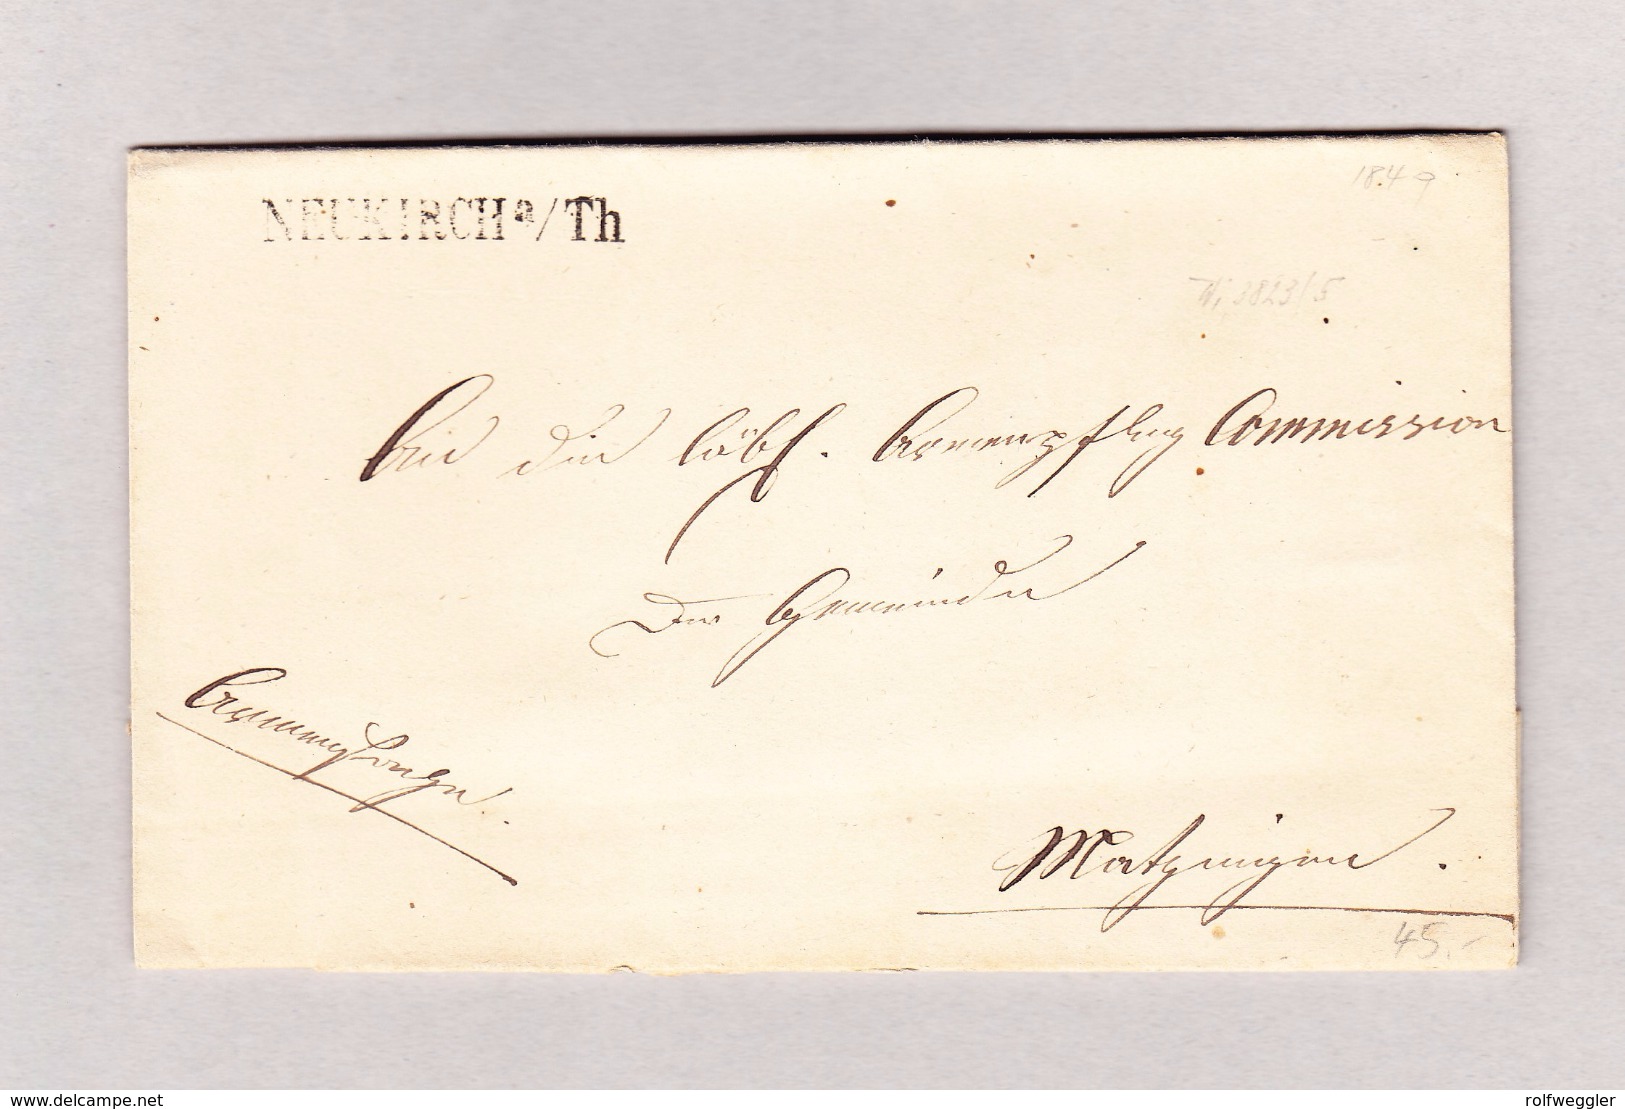 NEUKIRCH a/Th
1849
Wi. 3823/5
An die löbl. Armenpfleg Commission
der Gemeinde
Armensache.
Matzingen.
45.-
www.delcampe.net
rolfweggler